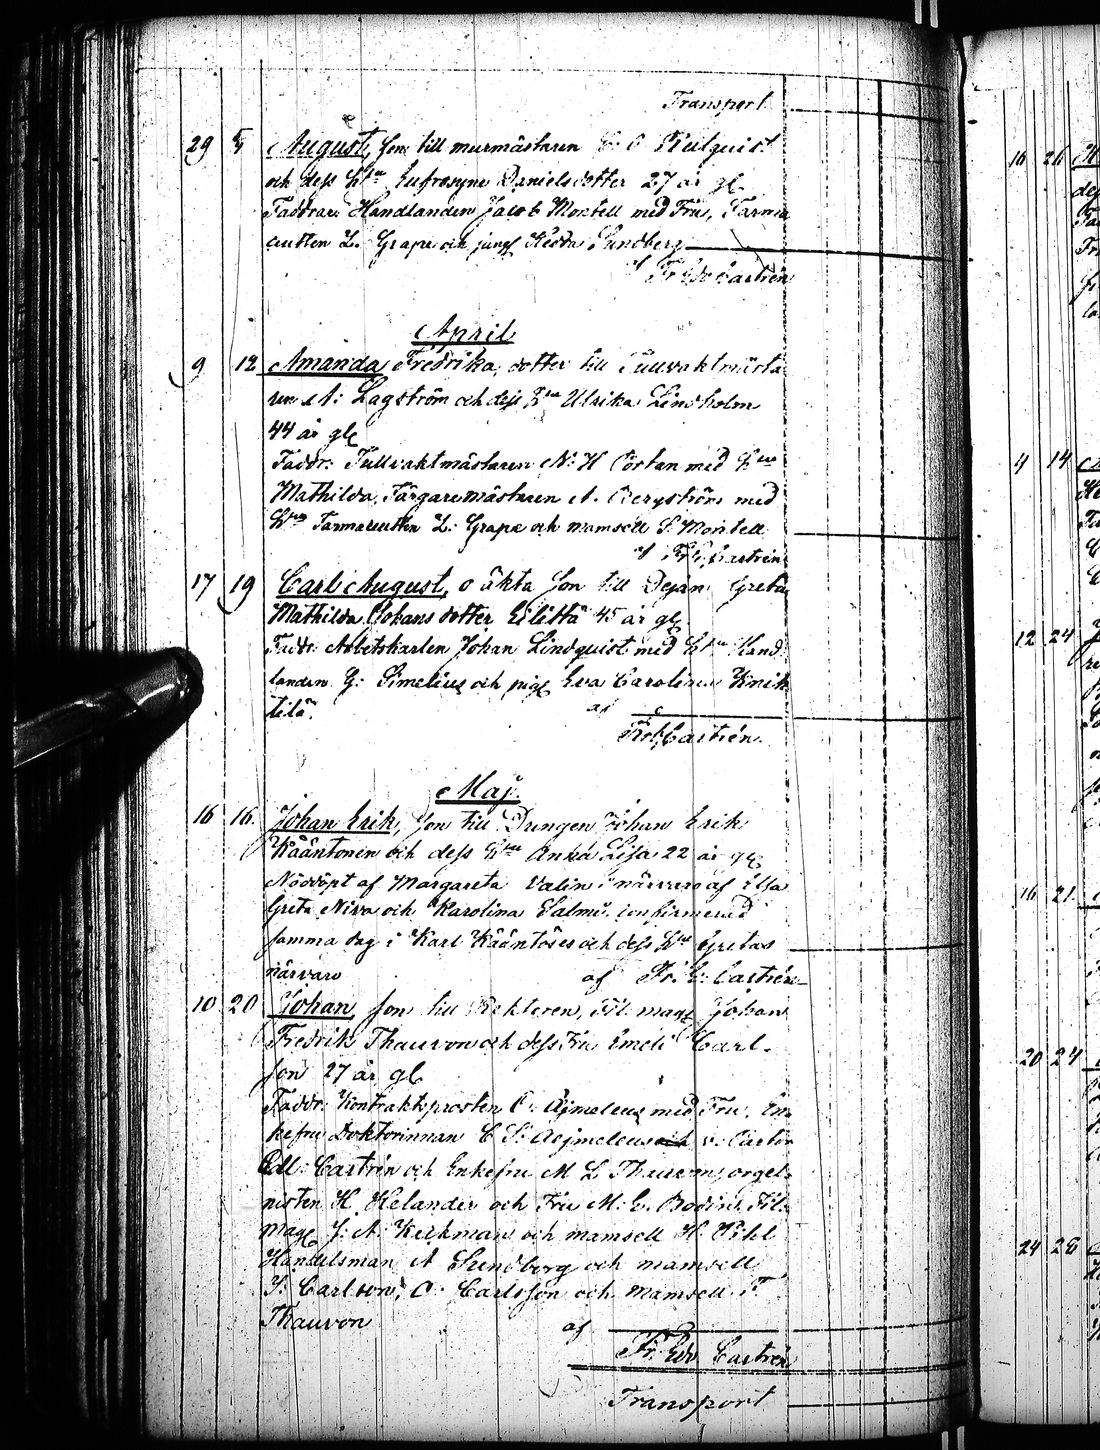 Transport
29 5 August, son till murmästaren C. O. Rulquist
och dess h:u Eufrosyne Danielsdotter 27 år gl.
Faddrar: Handlanden Jacob Montell med Fru, Farma
ceuten L. Grape och jungf Hedda Sundberg
af Fr Edv Castrén
April
9 12 Amanda Fredrika, dotter till Tullvaktmästa
ren A: Lagström och dess h:u Ulrika Lindholm
44 år gl
Faddr: Tullvaktmästaren N: H Cortan med h:u
Mathilda, Färgaremästaren A. Bergström med
h:u Farmaceuten L: Grape och mamsell S. Montell
af Fr. E. Castrén
17 19 Carl August, o äkta son till Pejan Greta
Mathilda Johansdotter 45 år gl
Faddr: Arbetskarlen Johan Lindquist med h:u Hand
landen G: Simelius och pig Eva Carolina Knik
tilä.
af
Fr. E. Castrén.
Maj.
16 16. Johan Erik, son till Drengen Johan Erik
Kääntönen och dess h:u Anna Lisa 22 år gl
Nöddöpt af Margareta Valin i närvaro af Elsa
Greta Niva och Karolina Salmi, confirmerad
samma dag i Karl Kääntöses och dess h:u Gretas
närvaro af Fr. E. Castrén
10 20 Johan, son till Rektoren, Fil. mag Johan
Fredrik Thauvon och dess Fru Emeli Carl-
son 27 år gl
Faddr: Kontraktsprosten C. Æjmeleus med Fru, En
kefru Doktorinnan C S: Aejmeleus v. Pastor
Castrén och Enkefru M L Thauvon, orgel-
nisten H Helander och Fru M. E. Bodin, Fil.
mag J: A: Keckman och mamsell H. Pihl
Handelsman A Sundberg och mamsell
S: Carlson, O. Carlsson och mamsell F
Thauvon
af
Fr. Edv Castrén
Transport
16 26
4 14
12 24
16 21.
20 24
24 28